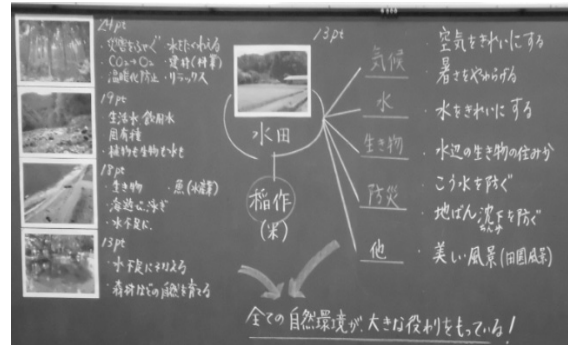 24pt
・災害をふせぐ ・水をたくわえる
・CO₂→O₂ ・建材(林業)
・温暖化防止 ・リラックス
19pt
・生活水・飲用水
・固有種
・植物も生物も水も
18pt
・生き物 ・魚(水産業)
・海遊び、泳ぎ
13pt
・水不足にそなえる
・森林などの自然を育てる
13pt
水田
稲作
(米)
気候
・空気をきれいにする
・暑さをやわらげる
水
・水をきれいにする
生き物
・水辺の生き物の住みか
防災
・こう水を防ぐ
・地ばん沈下を防ぐ
ちんか
他
・美しい風景(田園風景)
全ての自然環境が、大きな役わりをもっている!